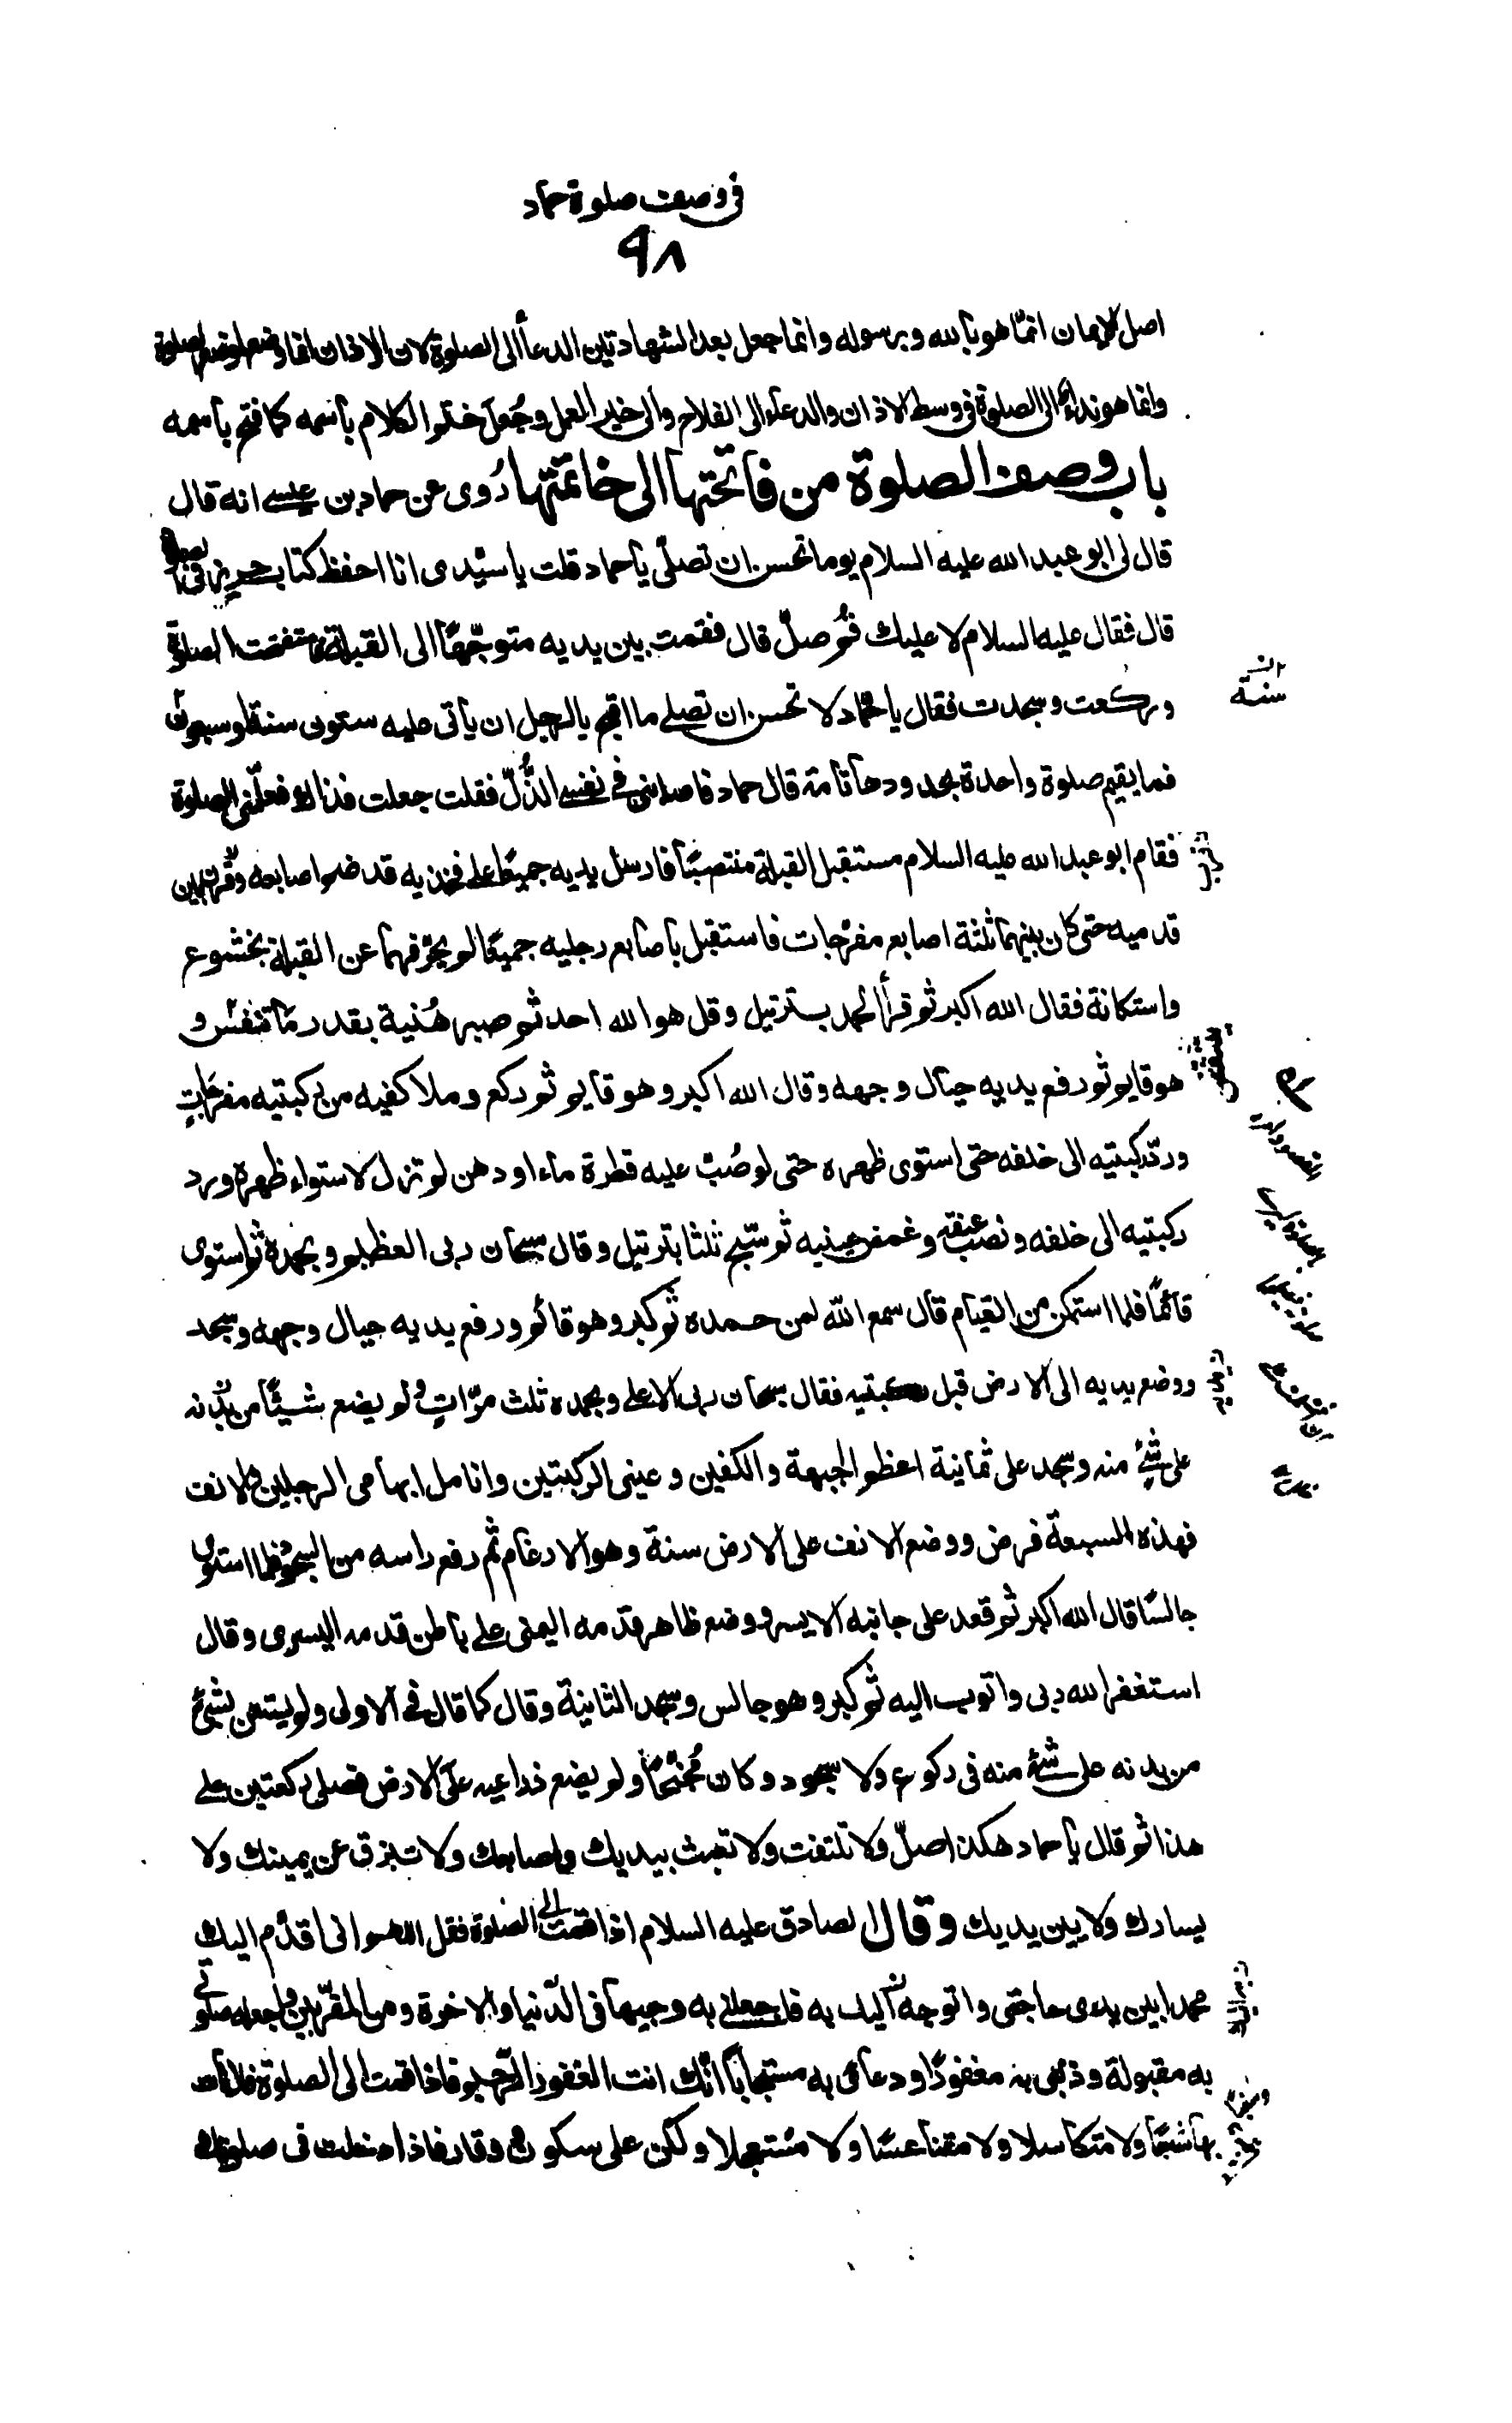 في وصف صلوة حماد
٩٨
اصل الايمان انما هو بالله وبرسوله وانما جعل بعد الشهادتين الدعأ الى الصلوة لان الاذان انما وضع لموضع الصلوة
وانما هو نداء الى الصلوة في وسط الاذان والدعاء الى الفلاح والى خير العمل وجُعل ختم الكلام بأسمه كما فتح بأسمه
باب وصف الصلوة من فاتحتها الى خاتمتها رُوى عن حماد بن عيسى انه قال
قال لى ابو عبد الله عليه السلام يوما تحسن ان تصلّى يا حماد قلت يا سيّدى انا احفظ كتاب حريز في الصلوة
قال فقال عليه السلام لا عليك قُم صلّ قال فقمت بين يديه متوجّهًا الى القبلة فاستفتحت الصلوة
وركعت وسجدت فقال يا حمّاد لا تحسن ان تصلى ما اقبح بالرجل ان يأتى عليه ستون سنة او سبعون
سنة
فما يقيم صلوة واحدة بحدودها تامة قال حماد فاصابنى في نفسى الذُّلّ فقلت جعلت فداك فعلّمنى الصلوة
فقام ابو عبد الله عليه السلام مستقبل القبلة منتصبًا فارسل يديه جميعًا على فخذيه قد ضم اصابعه وقرّب بين
قدميه حتى كان بينهما ثلثة اصابع مفرّجات فاستقبل بأصابع رجليه جميعًا لم يحرّفهما عن القبلة بخشوع
واستكانة فقال الله اكبر ثم قرأ الحمد بترتيل وقل هو الله احد ثم صبر هُنية بقدر ما تنفس و
هو قايم ثم رفع يديه حيال وجهه وقال الله اكبر وهو قايم ثم ركع وملا كفيه من ركبتيه مفرّجاتٍ
وردّ ركبتيه الى خلفه حتى استوى ظهره حتى لو صُبّ عليه قطرة ماء او دهن لم تزل لاستواء ظهره ورد
ركبتيه الى خلفه ونصب عنقه وغمض عينيه ثم سبّح ثلثا بترتيل وقال سبحان ربى العظيم وبحمده ثم استوى
قائمًا فلما استمكن من القيام قال سمع الله لمن حمده ثم كبر وهو قائم ورفع يديه حيال وجهه وسجد
ووضع يديه الى الارض قبل ركبتيه فقال سبحان ربى الاعلى وبحمده ثلث مرّاتٍ ولم يضع شيئًا من بدنه
على شئ منه وسجد على ثمانية اعظم الجبهة والكفين وعينى الركبتين وانامل ابهامى الرجلين والانف
فهذه السبعة فرض ووضع الانف على الارض سنة وهو الارغام ثم رفع راسه من السجود فلما استوى
جالسًا قال الله اكبر ثم قعد على جانبه الايسر ووضع ظاهر قدمه اليمنى على باطن قدمه اليسرى وقال
استغفر الله ربى واتوب اليه ثم كبر وهو جالس وسجد الثانية وقال كما قال في الاولى ولم يستعن بشئ
من بدنه على شئ منه في ركوع ولا سجود وكان مُجنّحًا ولم يضع ذراعيه على الارض فصلى ركعتين على
هذا ثم قال يا حماد هكذا صلّ ولا تلتفت ولا تعبث بيديك واصابعك ولا تبزق عن يمينك ولا
يسارك ولا بين يديك وقال الصادق عليه السلام اذا قمت الى الصلوة فقل اللهم انى اقدّم اليك
محمدا بين يدى حاجتى واتوجه اليك به فاجعلنى به وجيها في الدّنيا والاخرة ومن المقرّبين واجعل صلوتى
به مقبولة وذنبى به مغفورًا ودعائى به مستجابًا انّك انت الغفور الرّحيم فاذا قمت الى الصلوة فلا تأت
بها شبعًا ولا متكاسلا ولا متقاعسًا ولا مستعجلا ولكن على سكون ووقار فاذا دخلت فى صلوتك